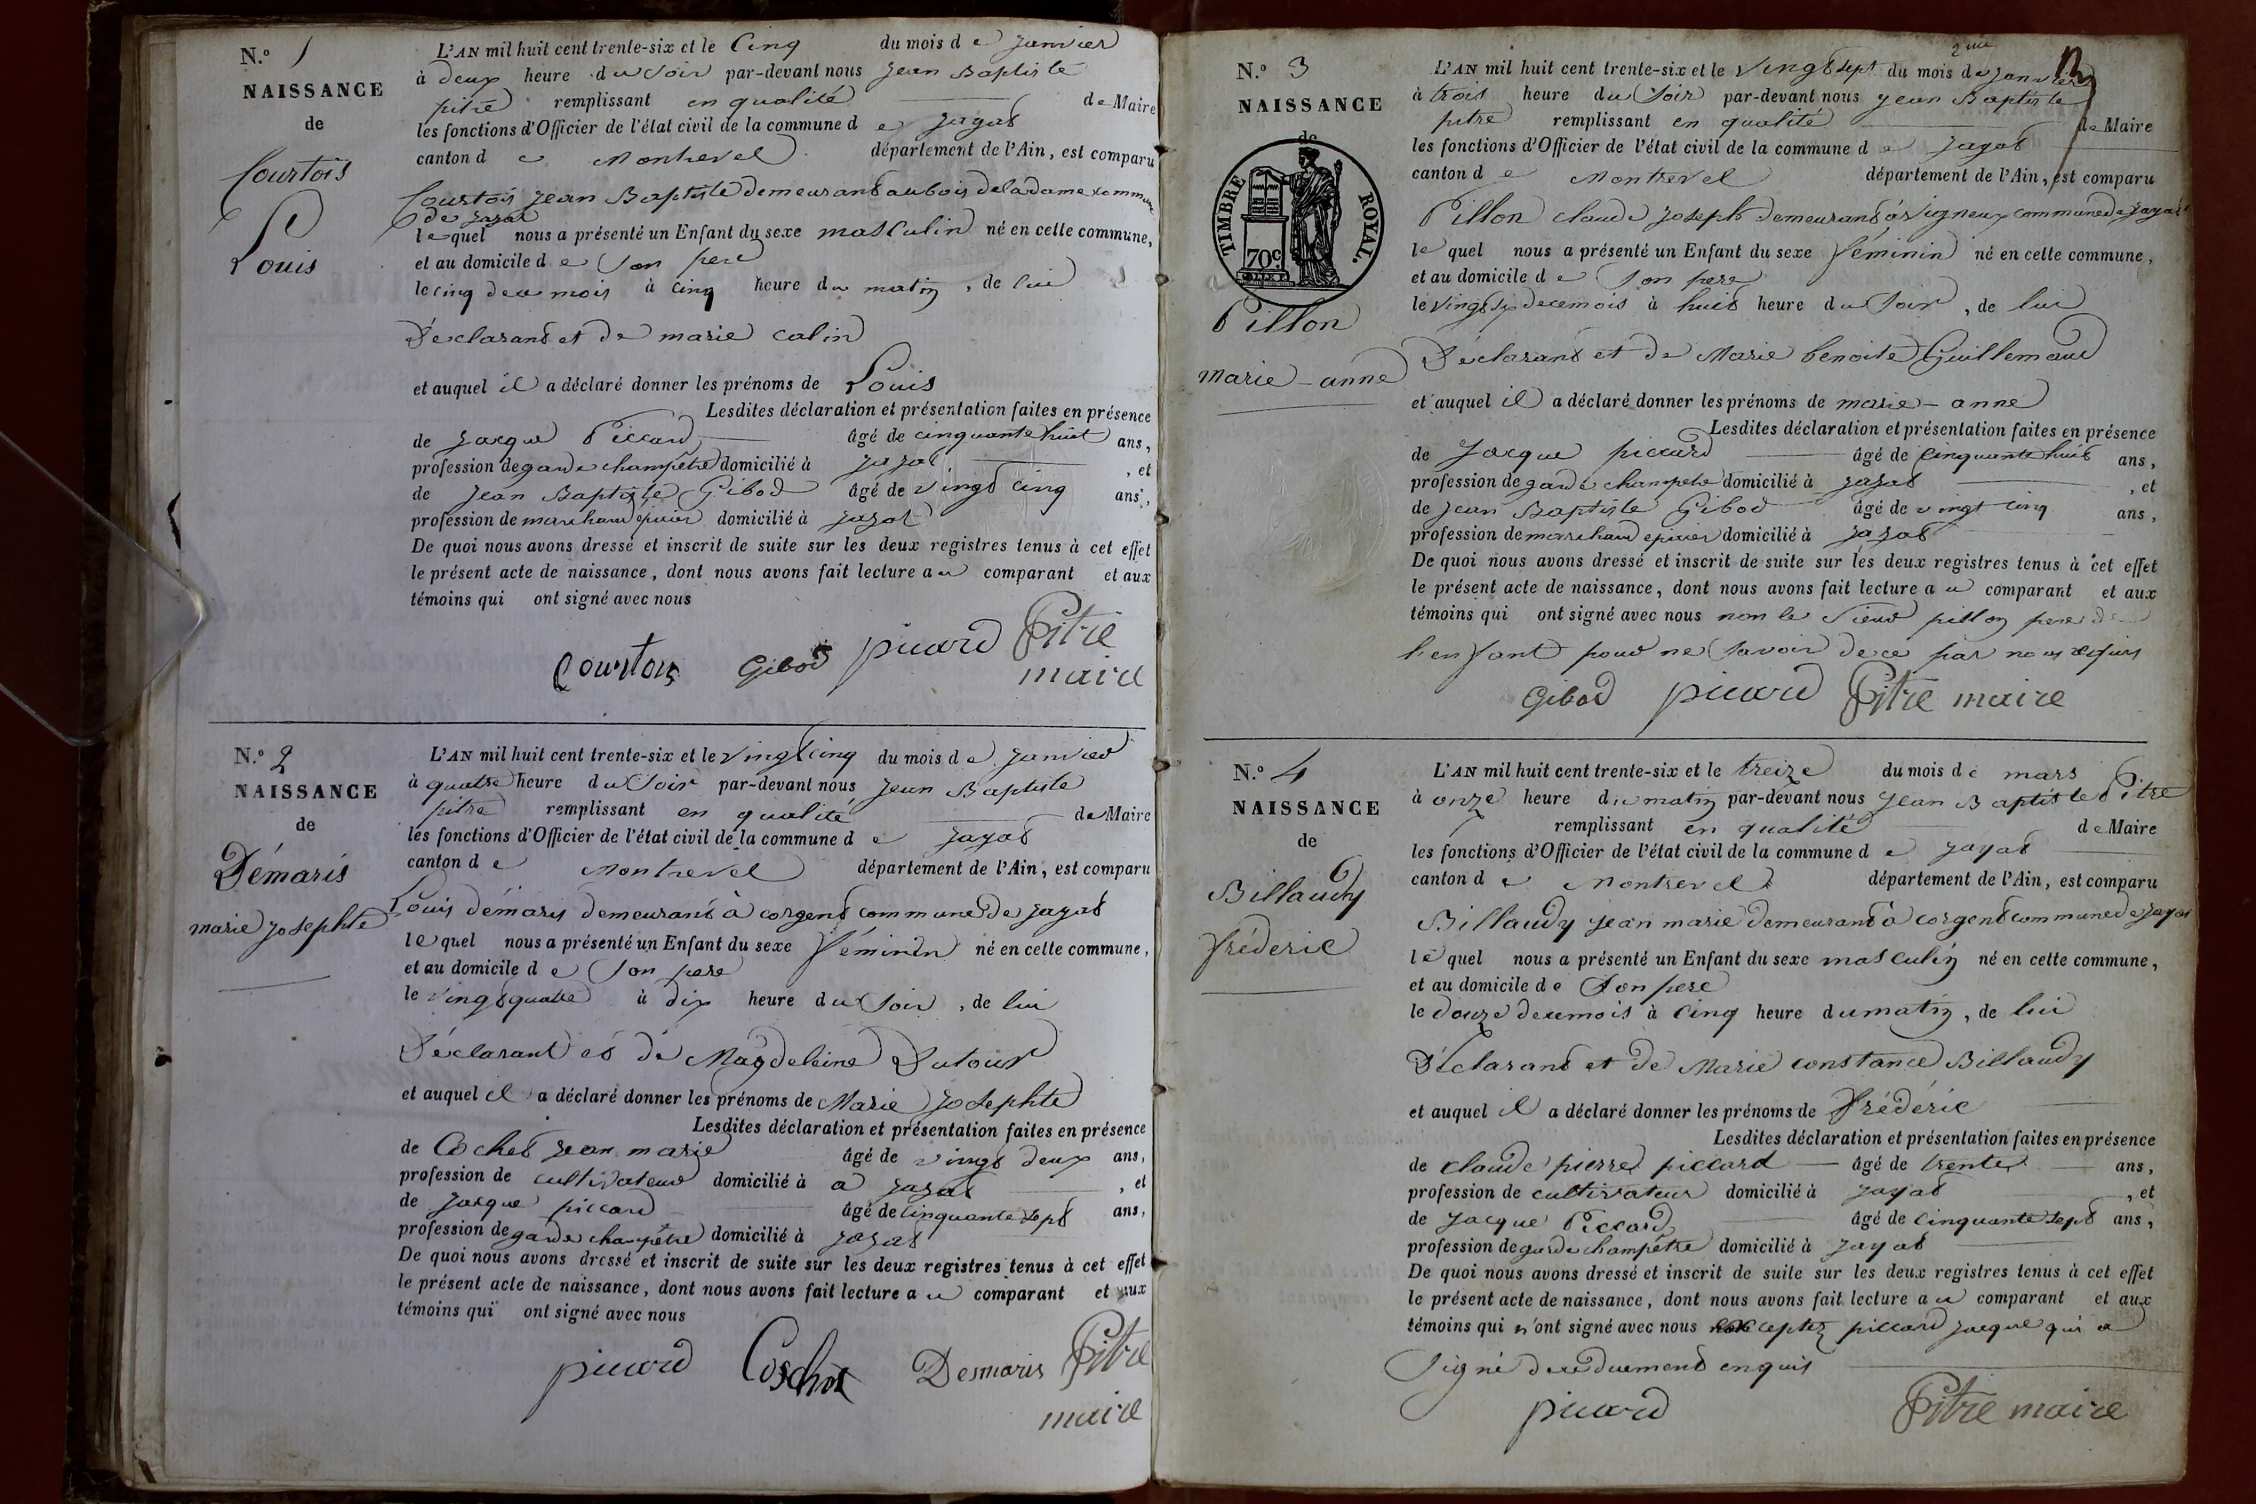 N.º 1
NAISSANCE
de
Courtois
Louis
L'AN mil huit cent trente-six et le Cinq du mois de Janvier
à deux heure du Soir par-devant nous Jean Baptiste
pitre remplissant en qualité de Maire
les fonctions d'Officier de l'état civil de la commune de Jayat
canton de Montrevel département de l'Ain, est comparu
Courtois Jean Baptiste demeurant au bois de la dame commune
de Jayat
lequel nous a présenté un Enfant du sexe masculin né en cette commune,
et au domicile de Son pere
le cinq de ce mois à cinq heure du matin, de lui
Déclarant et de marie calin
et auquel il a déclaré donner les prénoms de Louis
Lesdites déclaration et présentation faites en présence
de Jacque Piccard âgé de cinquante huit ans,
profession de garde champêtre domicilié à Jayat, et
de Jean Baptiste Gibod âgé de vingt cinq ans,
profession de marchand épicier domicilié à Jayat
De quoi nous avons dressé et inscrit de suite sur les deux registres tenus à cet effet
le présent acte de naissance, dont nous avons fait lecture au comparant et aux
témoins qui ont signé avec nous
Courtois Gibod picard Pitre
maire
N.º 2
NAISSANCE
de
Démaris
marie josephte
L'AN mil huit cent trente-six et le vingt cinq du mois de Janvier
à quatre heure du Soir par-devant nous Jean Baptiste
pitre remplissant en qualité de Maire
les fonctions d'Officier de l'état civil de la commune de Jayat
canton de Montrevel département de l'Ain, est comparu
Louis démaris demeurant à corgent commune de Jayat
lequel nous a présenté un Enfant du sexe féminin né en cette commune,
et au domicile de Son pere
le vingt quatre à dix heure du Soir, de lui
Déclarant et de Magdeleine Dutour
et auquel il a déclaré donner les prénoms de Marie Josephte
Lesdites déclaration et présentation faites en présence
de Cochet Jean marie âgé de vingt deux ans,
profession de cultivateur domicilié à a Jayat, et
de Jacque piccard âgé de cinquante sept ans,
profession de garde champêtre domicilié à Jayat
De quoi nous avons dressé et inscrit de suite sur les deux registres tenus à cet effet
le présent acte de naissance, dont nous avons fait lecture au comparant et aux
témoins qui ont signé avec nous
picard Coschet Desmaris Pitre
maire
2me
N.º 3
NAISSANCE
de
TIMBRE ROYAL.
70c.
Pillon
marie - anne
L'AN mil huit cent trente-six et le vingt sept du mois de Janvier
à trois heure du Soir par-devant nous Jean Baptiste
pitre remplissant en qualité de Maire
les fonctions d'Officier de l'état civil de la commune de Jayat
canton de Montrevel département de l'Ain, est comparu
Pillon claude Joseph demeurant à Vigneux commune de Jayat
lequel nous a présenté un Enfant du sexe féminin né en cette commune,
et au domicile de Son pere
le vingt six de ce mois à huit heure du Soir, de lui
Déclarant et de Marie benoite Guillemaud
et auquel il a déclaré donner les prénoms de marie - anne
Lesdites déclaration et présentation faites en présence
de Jacque piccard âgé de cinquante huit ans,
profession de garde champetre domicilié à Jayat, et
de Jean Baptiste Gibod âgé de vingt cinq ans,
profession de marchand epicier domicilié à Jayat
De quoi nous avons dressé et inscrit de suite sur les deux registres tenus à cet effet
le présent acte de naissance, dont nous avons fait lecture au comparant et aux
témoins qui ont signé avec nous non le Sieur pillon pere de
l'enfant pour ne Savoir de ce par nous requis
Gibod picard Pitre maire
N.º 4
NAISSANCE
de
Billaudy
fréderic
L'AN mil huit cent trente-six et le treize du mois de mars
à onze heure du matin par-devant nous Jean Baptiste Pitre
remplissant en qualité de Maire
les fonctions d'Officier de l'état civil de la commune de Jayat
canton de Montrevel département de l'Ain, est comparu
Billaudy jean marie demeurant à corgent commune de Jayat
lequel nous a présenté un Enfant du sexe masculin né en cette commune,
et au domicile de Son pere
le douze de ce mois à cinq heure du matin, de lui
Déclarant et de Marie constance Billaudy
et auquel il a déclaré donner les prénoms de frédéric
Lesdites déclaration et présentation faites en présence
de claude pierre piccard âgé de trente ans,
profession de cultivateur domicilié à Jayat, et
de Jacque Piccard âgé de cinquante sept ans,
profession de garde champêtre domicilié à Jayat
De quoi nous avons dressé et inscrit de suite sur les deux registres tenus à cet effet
le présent acte de naissance, dont nous avons fait lecture au comparant et aux
témoins qui n'ont signé avec nous piccard jacque qui a
Signé de ce duement enquis
picard Pitre maire